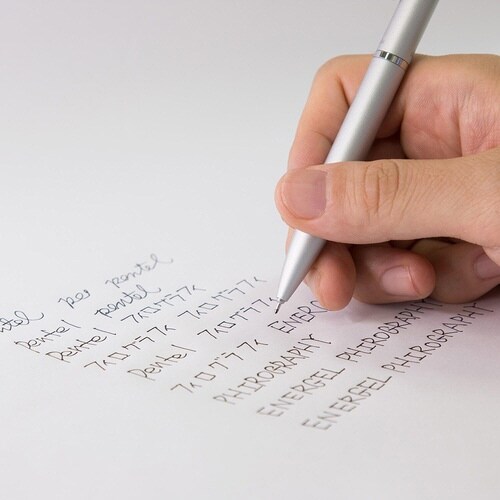 per pentel
pentel pentel
pentel フィログラフィ
フィログラフィ フィログラフィ
pentel フィログラフィ
フィログラフィ
PHIROGRAPHY
ENERGEL PHIROGRAPHY
ENERGEL PHIROGRAPHY